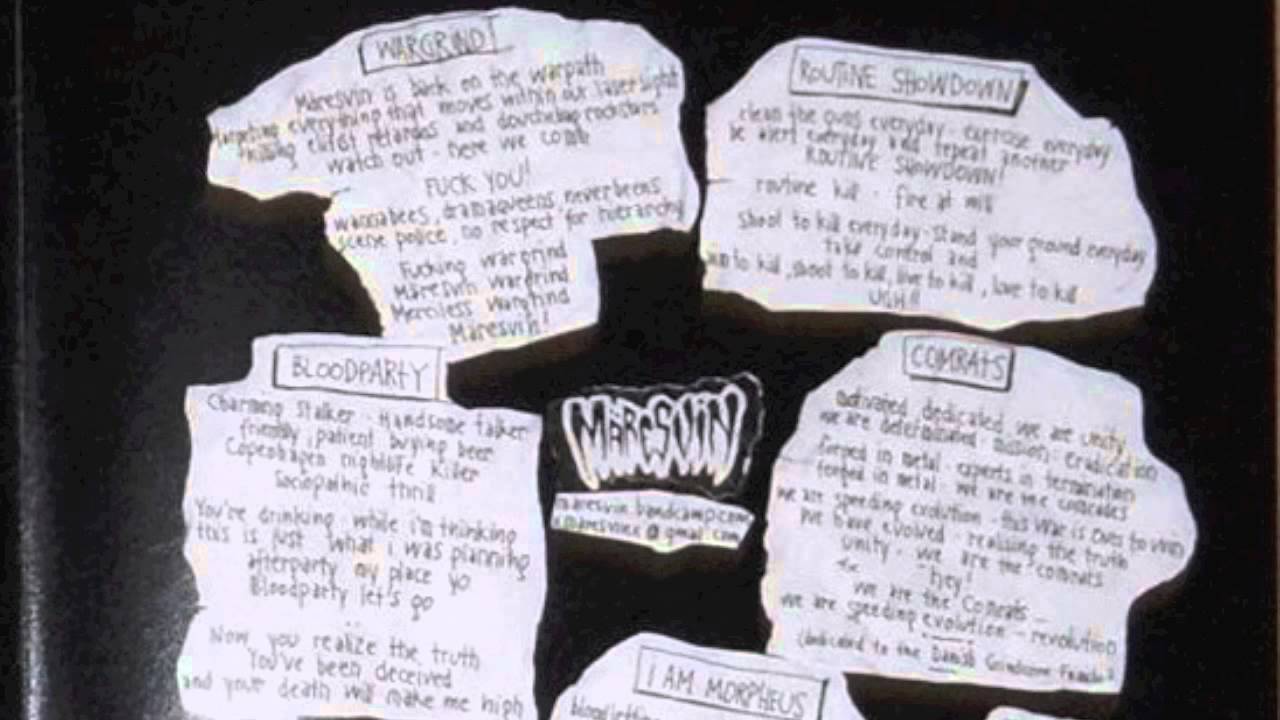 WARGRIND
Maresvin is back on the warpath
targeting everything that moves within our laser sight
killing elitist retards and douchebag rockstars
watch out - here we comb
FUCK YOU!
wannabees, dramaqueens neverbeens
scene police, no respect for hierarchy
Fucking wargrind
Maresvin Wargrind
Merciless Wargrind
Maresvin!
ROUTINE SHOWDOWN
clean the guns everyday - exercise everyday
be alert everyday and repeat another
ROUTINE SHOWDOWN!
routine kill - fire at will
shoot to kill everyday - Stand your ground everyday
take control and
to kill, shoot to kill, live to kill, love to kill
UGH!!
BLOODPARTY
Charming Stalker - Handsome talker
friendly, patient buying beer
Copenhagen nightlife killer
Sociopathic thrill
You're drinking - while i'm thinking
this is just what i was planning
afterparty my place yo
Bloodparty let's go
Now, you realize the truth
You've been deceived
and your death will make me high
MARESVIN
maresvin.bandcamp.com
@gmail.com
COMRATS
dedicated we are unity
we are determinated - mission: eradication
forged in metal - experts in termination
forged in metal - we are the comrades
we are speeding evolution - this war is ours to win
We have evolved - realising the truth
Unity - we are the comrats
"hey!"
we are the Comrats -
we are speeding evolution - revolution
(dedicated to the Danish Grindcore
I AM MORPHEUS
bloodletting